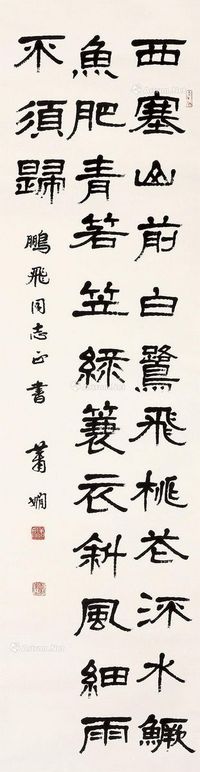 西塞山前白鷺飛桃花流水鱖
魚肥青箬笠綠蓑衣斜風細雨
不須歸
鵬飛同志正書 蕭嫻